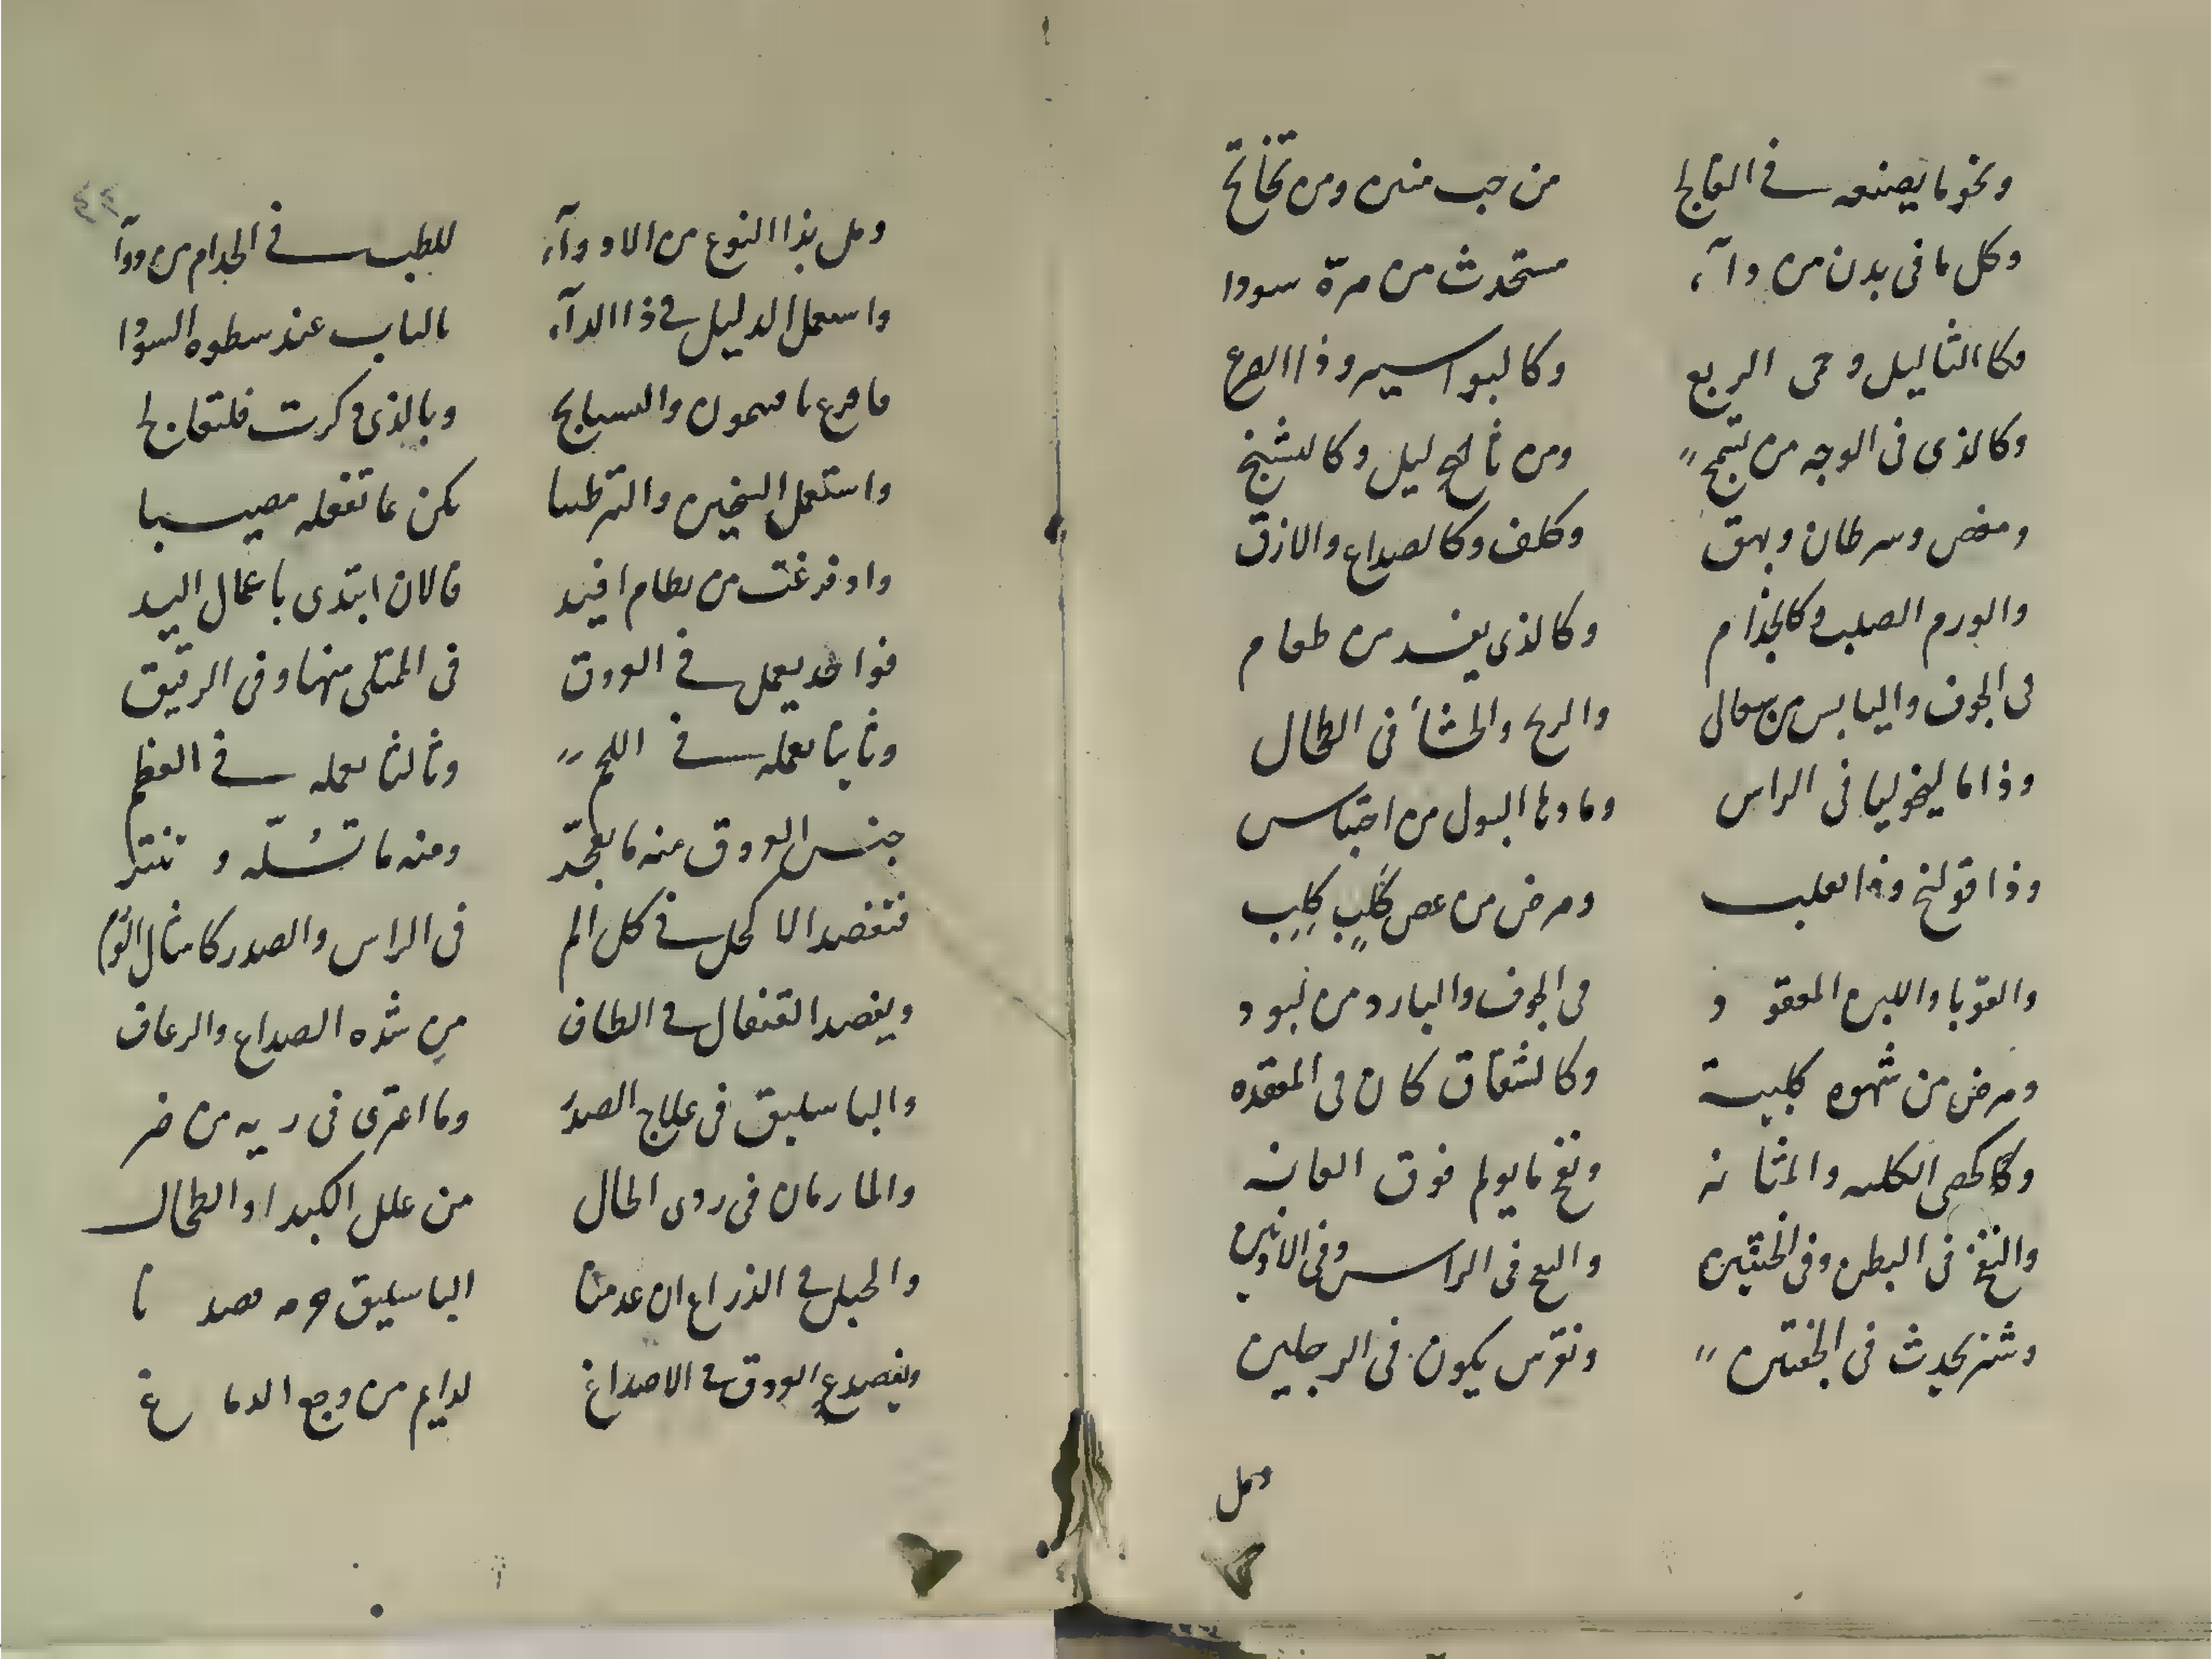 ونحو ما يصنعه في الفالج من حب منتن ومن تخاتخ
وكل ما في بدن من دآء مستحدث من مرة سودا
وكا الثاليل وحمى الربع وكالبواسير وذا الصرع
وكالذي في الوجه من ومن ليل وكالتشنج
ومغص وسرطان وبهق وكلف وكالصداع والارق
والورم الصلب وكالجذام وكالذي يفسد من طعام
في الجوف واليابس من سعال والريح والحشا في الطحال
وذا ماليخوليا في الراس وما دها البول من احتباس
وذا قولنج وذا لعلب ومرض من عض كلب كلب
والقوبا واللبن المعقود في الجوف والبارد من
ومرض من شهوه كلبية وكالشقاق كان في المقعده
وكالحصى الكلية والمثانه ونفخ ما يولم فوق العانه
والنفخ في البطن وفي في الراس وفي الاذنين
وشتر يحدث في الجفنين ونقرس يكون في الرجلين
ومل
ومل بذا النوع من الادوآء للطب في الجذام من دوآ
واستعمل الدليل في ذا الدآء بالباب عند سطوه السودا
وبالذي ذكرت فلتعالج
واستعمل والترطيبا يكن بما تفعله مصيبا
واد فرغت من نظام افيد فالان ابتدى باعمال اليد
فواحد يعمل في العروق في الممتلى منها وفي الرقيق
وثانيا تعمله في اللحم وثالثا تعمله في العظم
جنس العروق منه ما ومنه ما تسله و تبتر
فتفصد الاكحل في كل الم في الراس والصدر كامثال
ويفصد القيفال في الطاف من شده الصداع والرعاف
والباسليق في علاج الصدر وما اعترى في ريه من ضر
والمارمان في ردى الحال من علل الكبد او الطحال
والحبل في الذراع ان عدمنا الباسليق فصدنا
ويفصد العروق في الاصداغ لدايم من وجع الدماغ